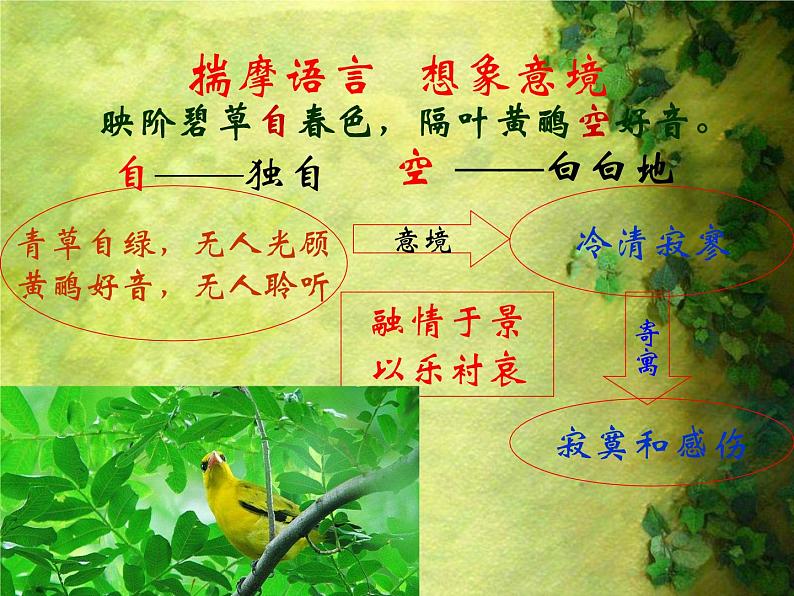 揣摩语言 想象意境
映阶碧草自春色，隔叶黄鹂空好音。
自——独自 空——白白地
青草自绿，无人光顾
黄鹂好音，无人聆听
意境
冷清寂寥
融情于景
以乐衬哀
寄寓
寂寞和感伤